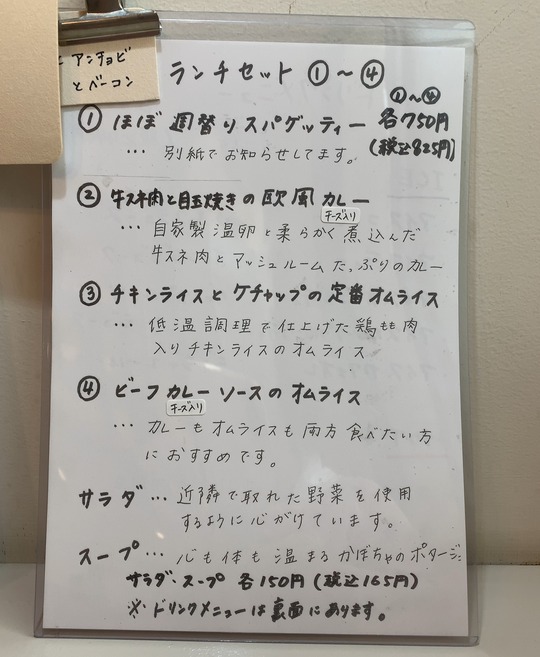 アンチョビ
とベーコン
ランチセット ①～④
①～④
① ほぼ 週替りスパゲッティー 各750円
(税込825円)
… 別紙でお知らせしてます。
② 牛スネ肉と目玉焼きの欧風カレー
チーズ入り
… 自家製温卵と柔らかく煮込んだ
牛スネ肉とマッシュルームたっぷりのカレー
③ チキンライスとケチャップの定番オムライス
… 低温調理で仕上げた鶏もも肉
入りチキンライスのオムライス
④ ビーフカレーソースのオムライス
チーズ入り
… カレーもオムライスも両方食べたい方
におすすめです。
サラダ … 近隣で取れた野菜を使用
するように心がけています。
スープ … 心も体も温まるかぼちゃのポタージュ
サラダ・スープ 各150円(税込165円)
※ ドリンクメニューは裏面にあります。